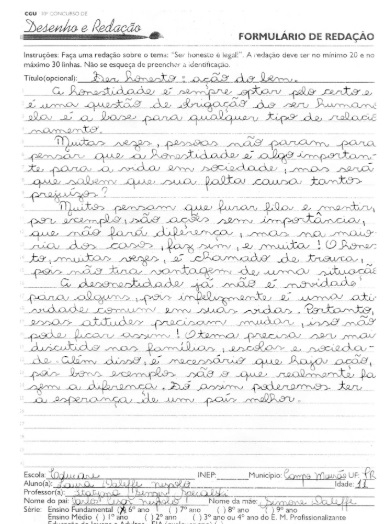 CGU 11º CONCURSO DE
Desenho e Redação
FORMULÁRIO DE REDAÇÃO
Instruções: Faça uma redação sobre o tema: "Ser honesto é legal!". A redação deve ser no mínimo 20 e no
máximo 30 linhas. Não se esqueça de preencher a identificação.
Título(opcional): Ser honesto: ação do bem.
A honestidade é sempre optar pelo certo e
é uma questão de obrigação do ser humano
ela é a base para qualquer tipo de relacio
namento.
Muitas vezes, pessoas não param para
pensar que a honestidade é algo importan-
te para a vida em sociedade, mas será
que sabem que sua falta causa tantos
prejuízos?
Muitos pensam que furar fila e mentir,
por exemplo, são ações sem importância,
que não fará diferença, mas na maio
ria dos casos, faz sim, e muita! O hones
to, muitas vezes, é chamado de trouxa,
pois não tira vantagem de uma situação
A desonestidade já não é novidade
para alguns, pois infelizmente é uma ati
vidade comum em suas vidas. Portanto,
essas atitudes precisam mudar, isso não
pode ficar assim! O tema precisa ser mais
discutido nas famílias, escolas e socieda-
de. Além disso, é necessário que haja ação,
pois bons exemplos são o que realmente fa
zem a diferença. Só assim poderemos ter
a esperança de um país melhor.
Escola: INEP: Município: Campo Mourão UF: PR
Aluno(a): Laura Idade: 11
Professor(a):
Nome do pai: Nome da mãe: Simone
Série: Ensino Fundamental (X) 6º ano ( ) 7º ano ( ) 8º ano ( ) 9º ano
Ensino Médio ( ) 1º ano ( ) 2º ano ( ) 3º ano ou 4º ano do E. M. Profissionalizante